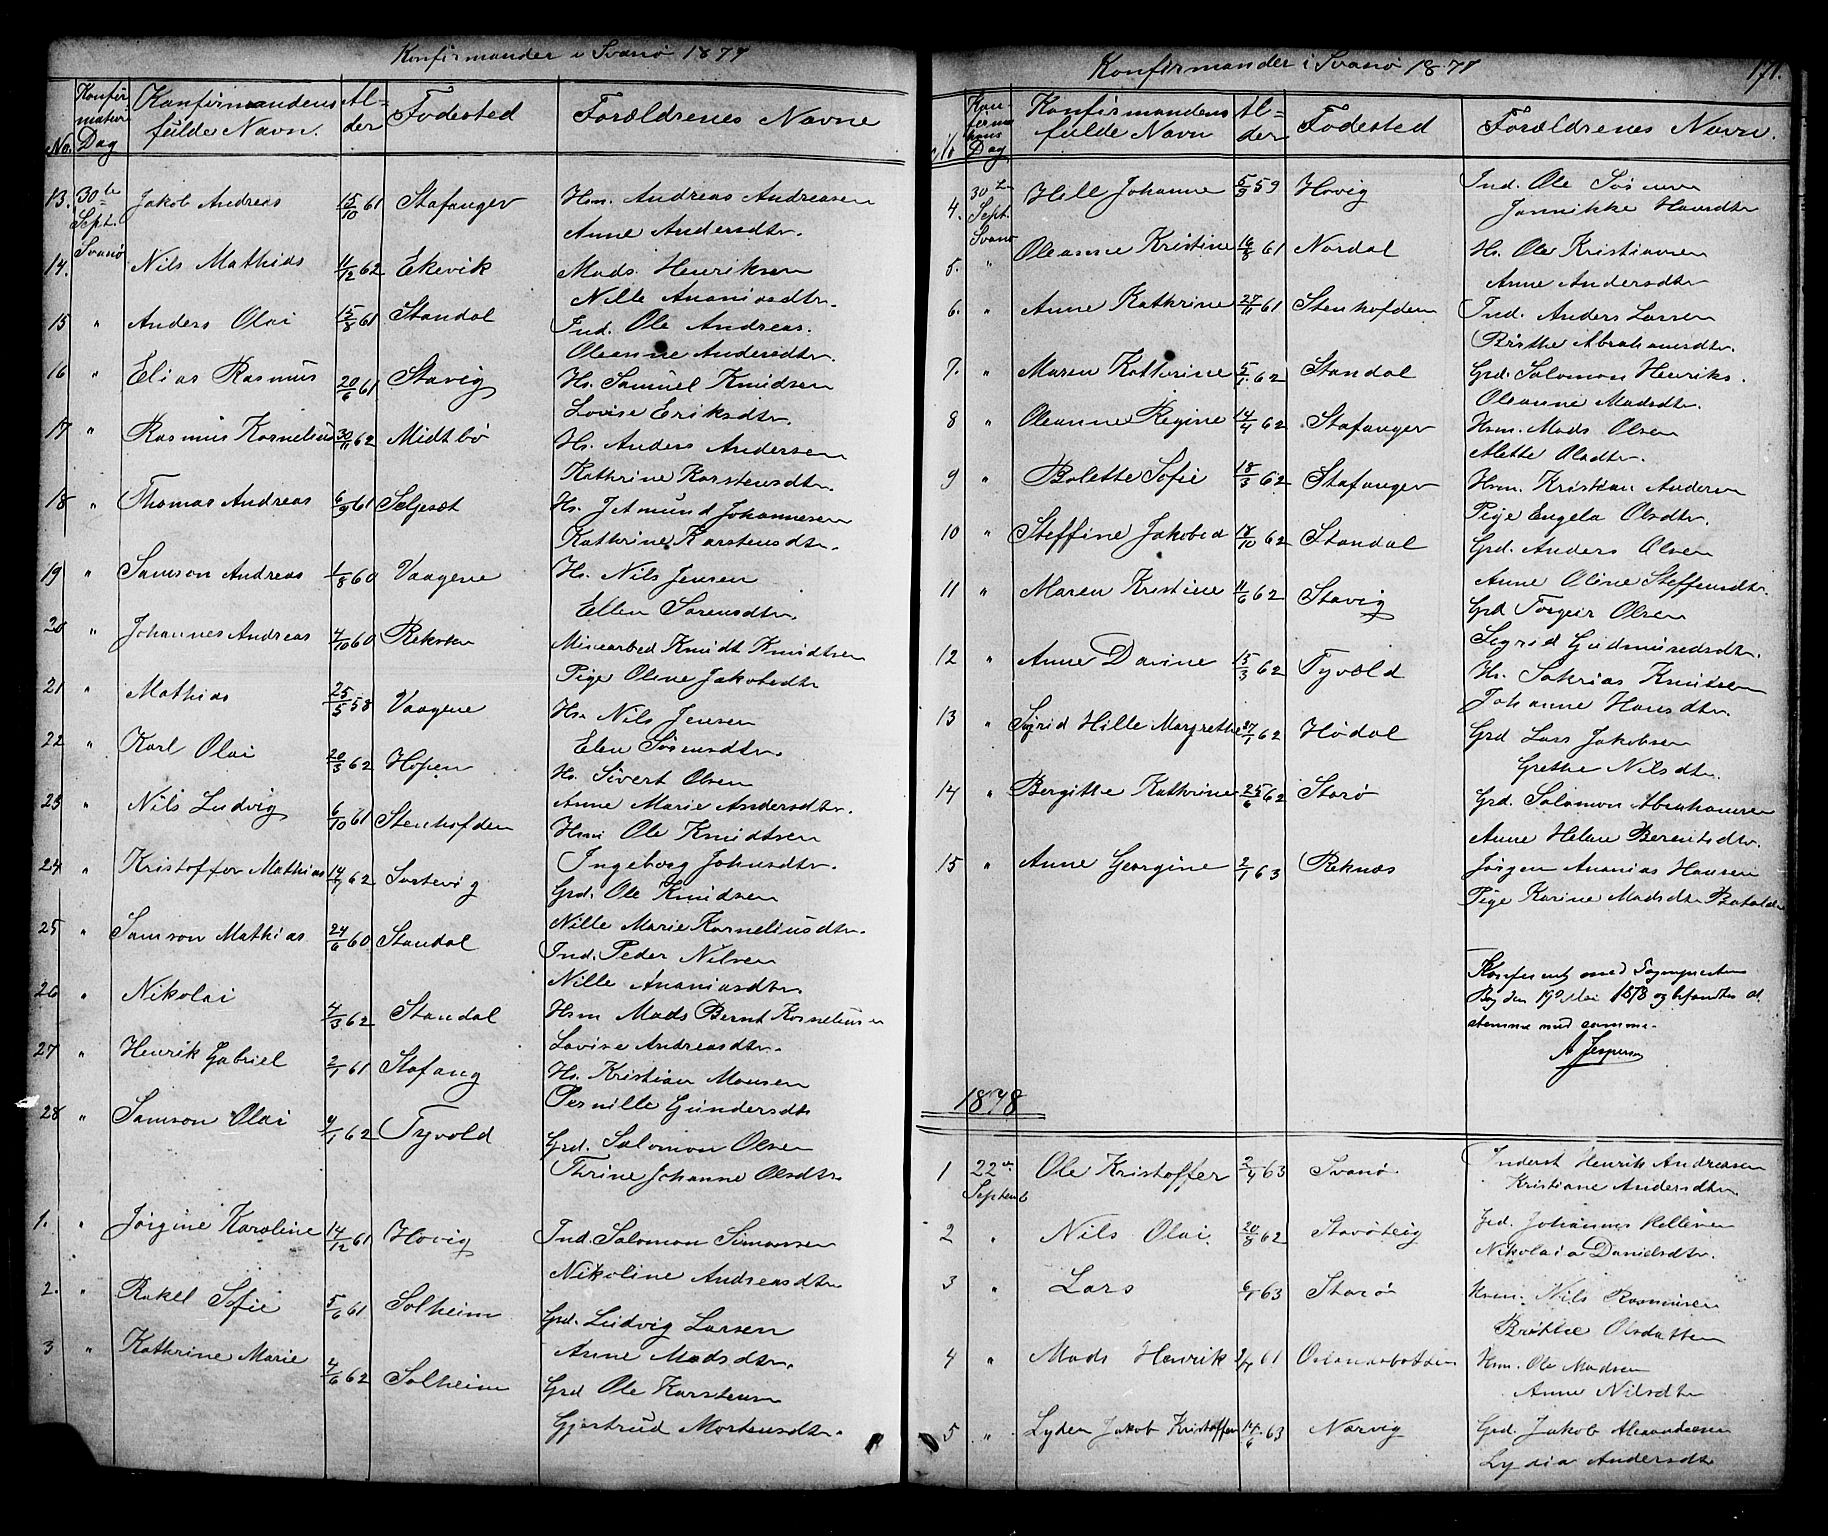 Konfirmander i Svanø 1877
No. Konfirmations Dag Konfirmandens fulde Navn. Alder Fødested Forældrenes Navne
13. 30te Sept. Svanø Jakob Andreas 15/10 61 Stafanger Hsm. Andreas Andreasen
Anne Andersdtr.
14. Nils Mathias 11/12 62 Ekevik Mads Henriksen
Nille Ananiasdtr.
15 " Anders Olai 15/8 61 Standal Ind. Ole Andreas.
Oleanne Andersdtr.
16 " Elias Rasmus 20/6 61 Stavig Hs. Samuel Knudsen
Lovise Eriksdtr.
17 " Rasmus Kornelius 30/11 62 Midtbø Hs. Anders Andersen
Kathrine Karstensdtr.
18 " Thomas Andreas 6/9 61 Seljesæt Hs. Johannesen
Kathrine Karstensdtr.
19 " Samson Andreas 1/8 60 Vaagene Hs. Nils Jensen
Ellen Sørensdtr.
20 " Johannes Andreas 4/10 60 Reksten Minearbed Knudt Knudtsen
Pige Oline Jakobsdtr
21 " Mathias 25/5 58 Vaagene Hs. Nils Jensen
Elen Sørensdtr.
22 " Karl Olai 20/3 62 Hopen Hs. Sivert Olsen
Anne Marie Andersdtr.
23 " Nils Ludvig 6/10 61 Stenhofden Hsm Ole Knudtsen
Ingeborg Johnsdtr.
24 " Kristoffer Mathias 14/7 62 Sørtevig Grd. Ole Knudsen
Nille Marie Korneliusdtr.
25 " Samson Mathias 24/6 60 Standal Ind. Peder Nilsen
Nille Ananiasdtr.
26 " Nikolai 4/3 62 Standal Hsm Mads Bernt Kornelius n
Lovise Andreasdtr.
27 " Henrik Gabriel 2/1 61 Stafang Hs. Kristian Monsen
Pernille Gundersdtr
28 " Samson Olai 4/1 62 Tyvold Grd. Salomon Olsen
Thrine Johanne Olsdtr.
1. " Jørgine Karoline 14/12 61 Hovig Ind. Salomon Simonsen
Nikoline Andreasdtr.
2. " Rakel Sofie 5/6 61 Solheim Grd. Ludvig Larsen
Anne Madsdtr.
3 " Kathrine Marie 4/6 62 Solheim Grd Ole Karstensen
Gjertrud Mortensdtr.
Konfirmander i Svanø 1877 171.
No Konfirmations Dag Konfirmandens fulde Navn Alder Fødested Forældrenes Navn.
4. 30te Sept. Svanø Hille Johanne 5/9 59 Hovig Ind. Ole Sørensen
Jannikke Hansdtr
5. " Oleanne Kristine 16/8 61 Nordal Hs. Ole Kristiansen
Anne Andersdtr
6. " Anne Kathrine 27/11 61 Stenhofden Ind. Anders Larsen
Brithe Abrahamsdtr.
7. " Maren Kathrine 5/1 62 Standal Grd. Salomon Henriks.
Oleanne Madsdtr.
8 " Oleanne Regine 14/4 62 Stafanger Hsm. Mads Olsen
Alette Olsdtr.
9 " Bolette Sofie 18/3 62 Stafanger Hsm. Kristian Andersen
Pige Engela Olsdtr.
10 " Steffine Jakobea 18/10 62 Standal Grd. Anders Olsen
Anne Oline Steffensdtr.
11 " Maren Kristine 11/6 62 Stavig Grd Torgeir Olsen
Sigrid Gudmundsdtr.
12 " Anne Davine 15/3 62 Tyvold Hs. Sakrias Knudsen
Johanne Hansdtr.
13 " Sigrid Hille Margrethe 27/1 62 Hødal Grd Lars Jakobsen
Grethe Nilsdtr.
14 " Bergitte Kathrine 25/6 62 Starø Grd. Salomon Abrahamsen
Anne Helene Berentsdtr.
15 " Anne Georgine 2/1 63 Reknæs Jørgen Ananias Hansen
Pige Karine Madsdtr Batalden
Konfereret med Sognepræstens
Bog den 19de Mai 1878 og befandtes at
stemme med samme.
A Jespersen
1878
1 22de Septemb Ole Kristoffer 2/4 63 Svanø Inderst Henrik Andreasen
Kristiane Andersdtr.
2 " Nils Olai 20/8 62 Starøteig Grd. Johannes
Nikolaia Danielsdtr.
3 " Lars 6/1 63 Starø Hsm. Nils Rasmusen
Brithe Olsdatter
4 " Mads Henrik 2/4 61 Hsm. Ole Madsen
Anne Nilsdtr
5 " Lyder Jakob Kristoffer 14/6 63 Nørvig Grd. Jakob Alexandersen
Lydia Andersdtr